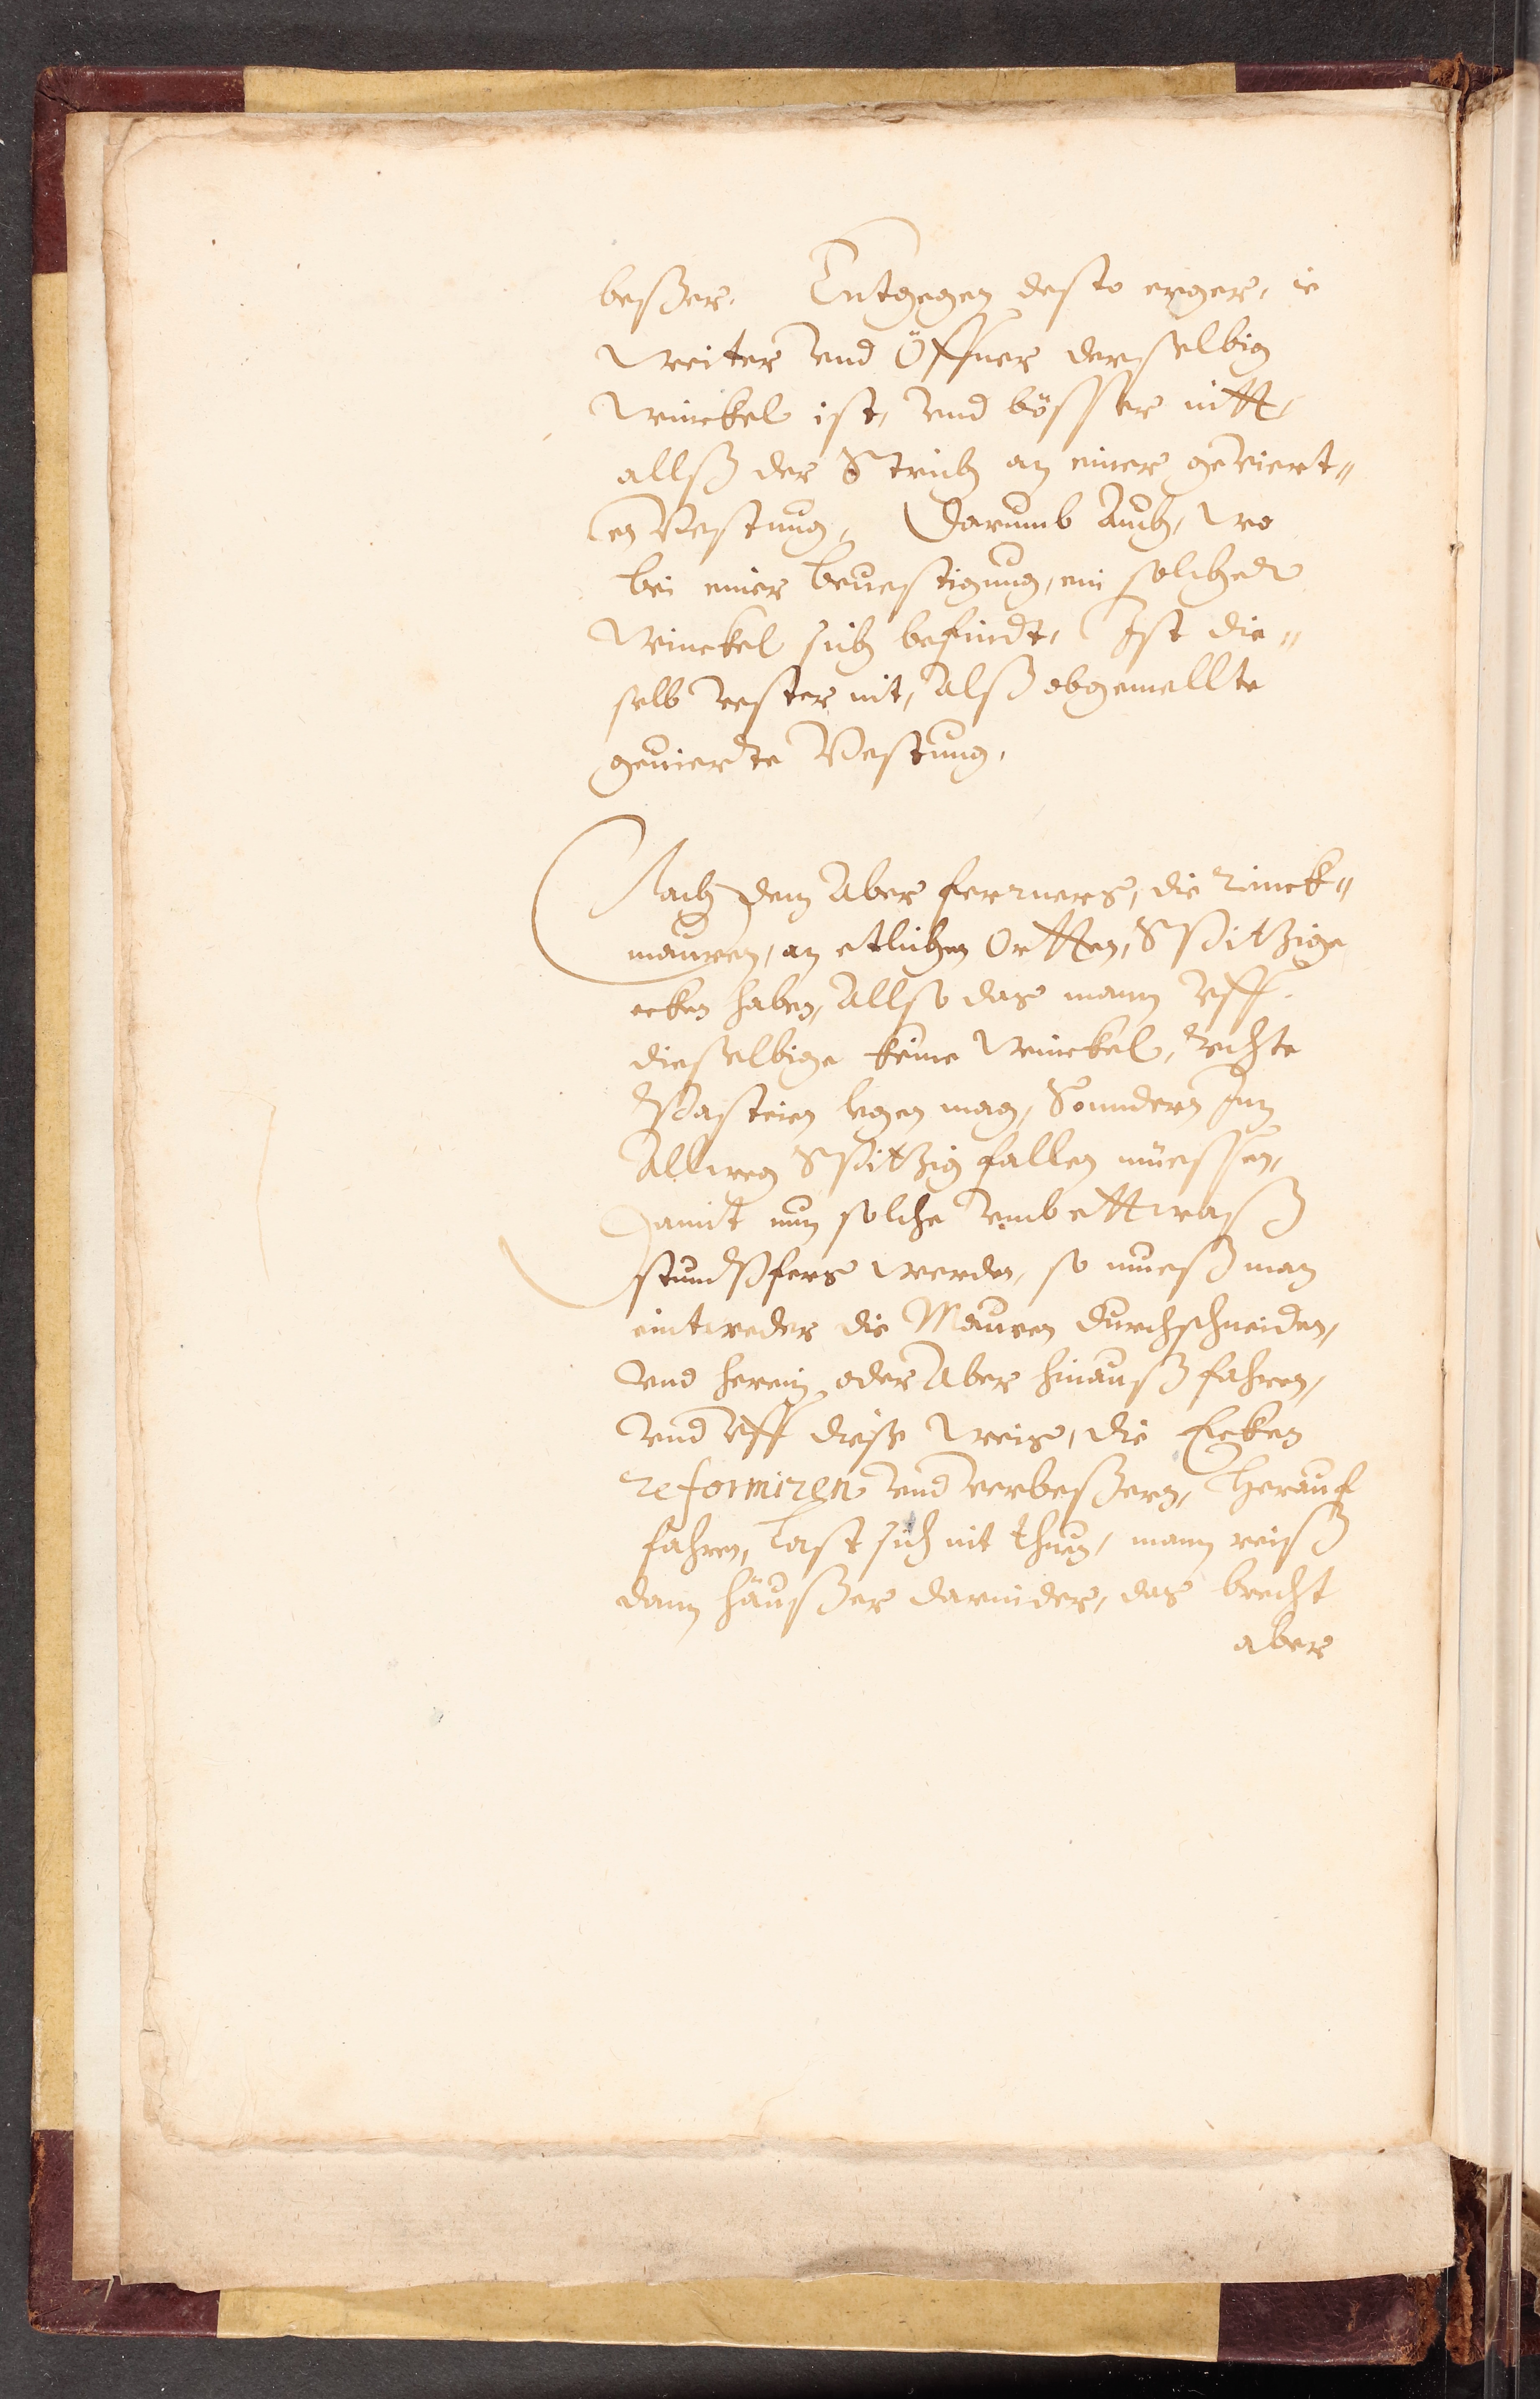 beßer. Entgegen desto erger, ie
weiter vnd Öffner derselbig
winckel ist, vnd bösser nitt,
allß der Strich an einer geviert„
en Vestung, Darumb Auch, wo
bei einer beuestigung, ein solcher
Winckel sich befindt, Ist die„
selb vester nit, Alß obgemellte
geuierdte Vestung.
Nach dem Aber ferrners, die rinck„
mauren, an etlichen Ortten, Spitzige
ecken haben, Allso das mann vff
dieselbige keine winckel, rechte
Pasteien legen mag, Sonndern Inn
Allweg Spitzig fallen müessen,
Damit nun solche vmb ettwaß
stumpfers werden, so mueß man
eintweder die Mauren durchschneiden,
vnd herein oder Aber hinauß fahren,
vnd vff diese weis, die Ecken
reformiren vnd verbeßern, herauß
fahren, last sich nit thun, mann reiß
dann häußer darnider, das brecht
aber